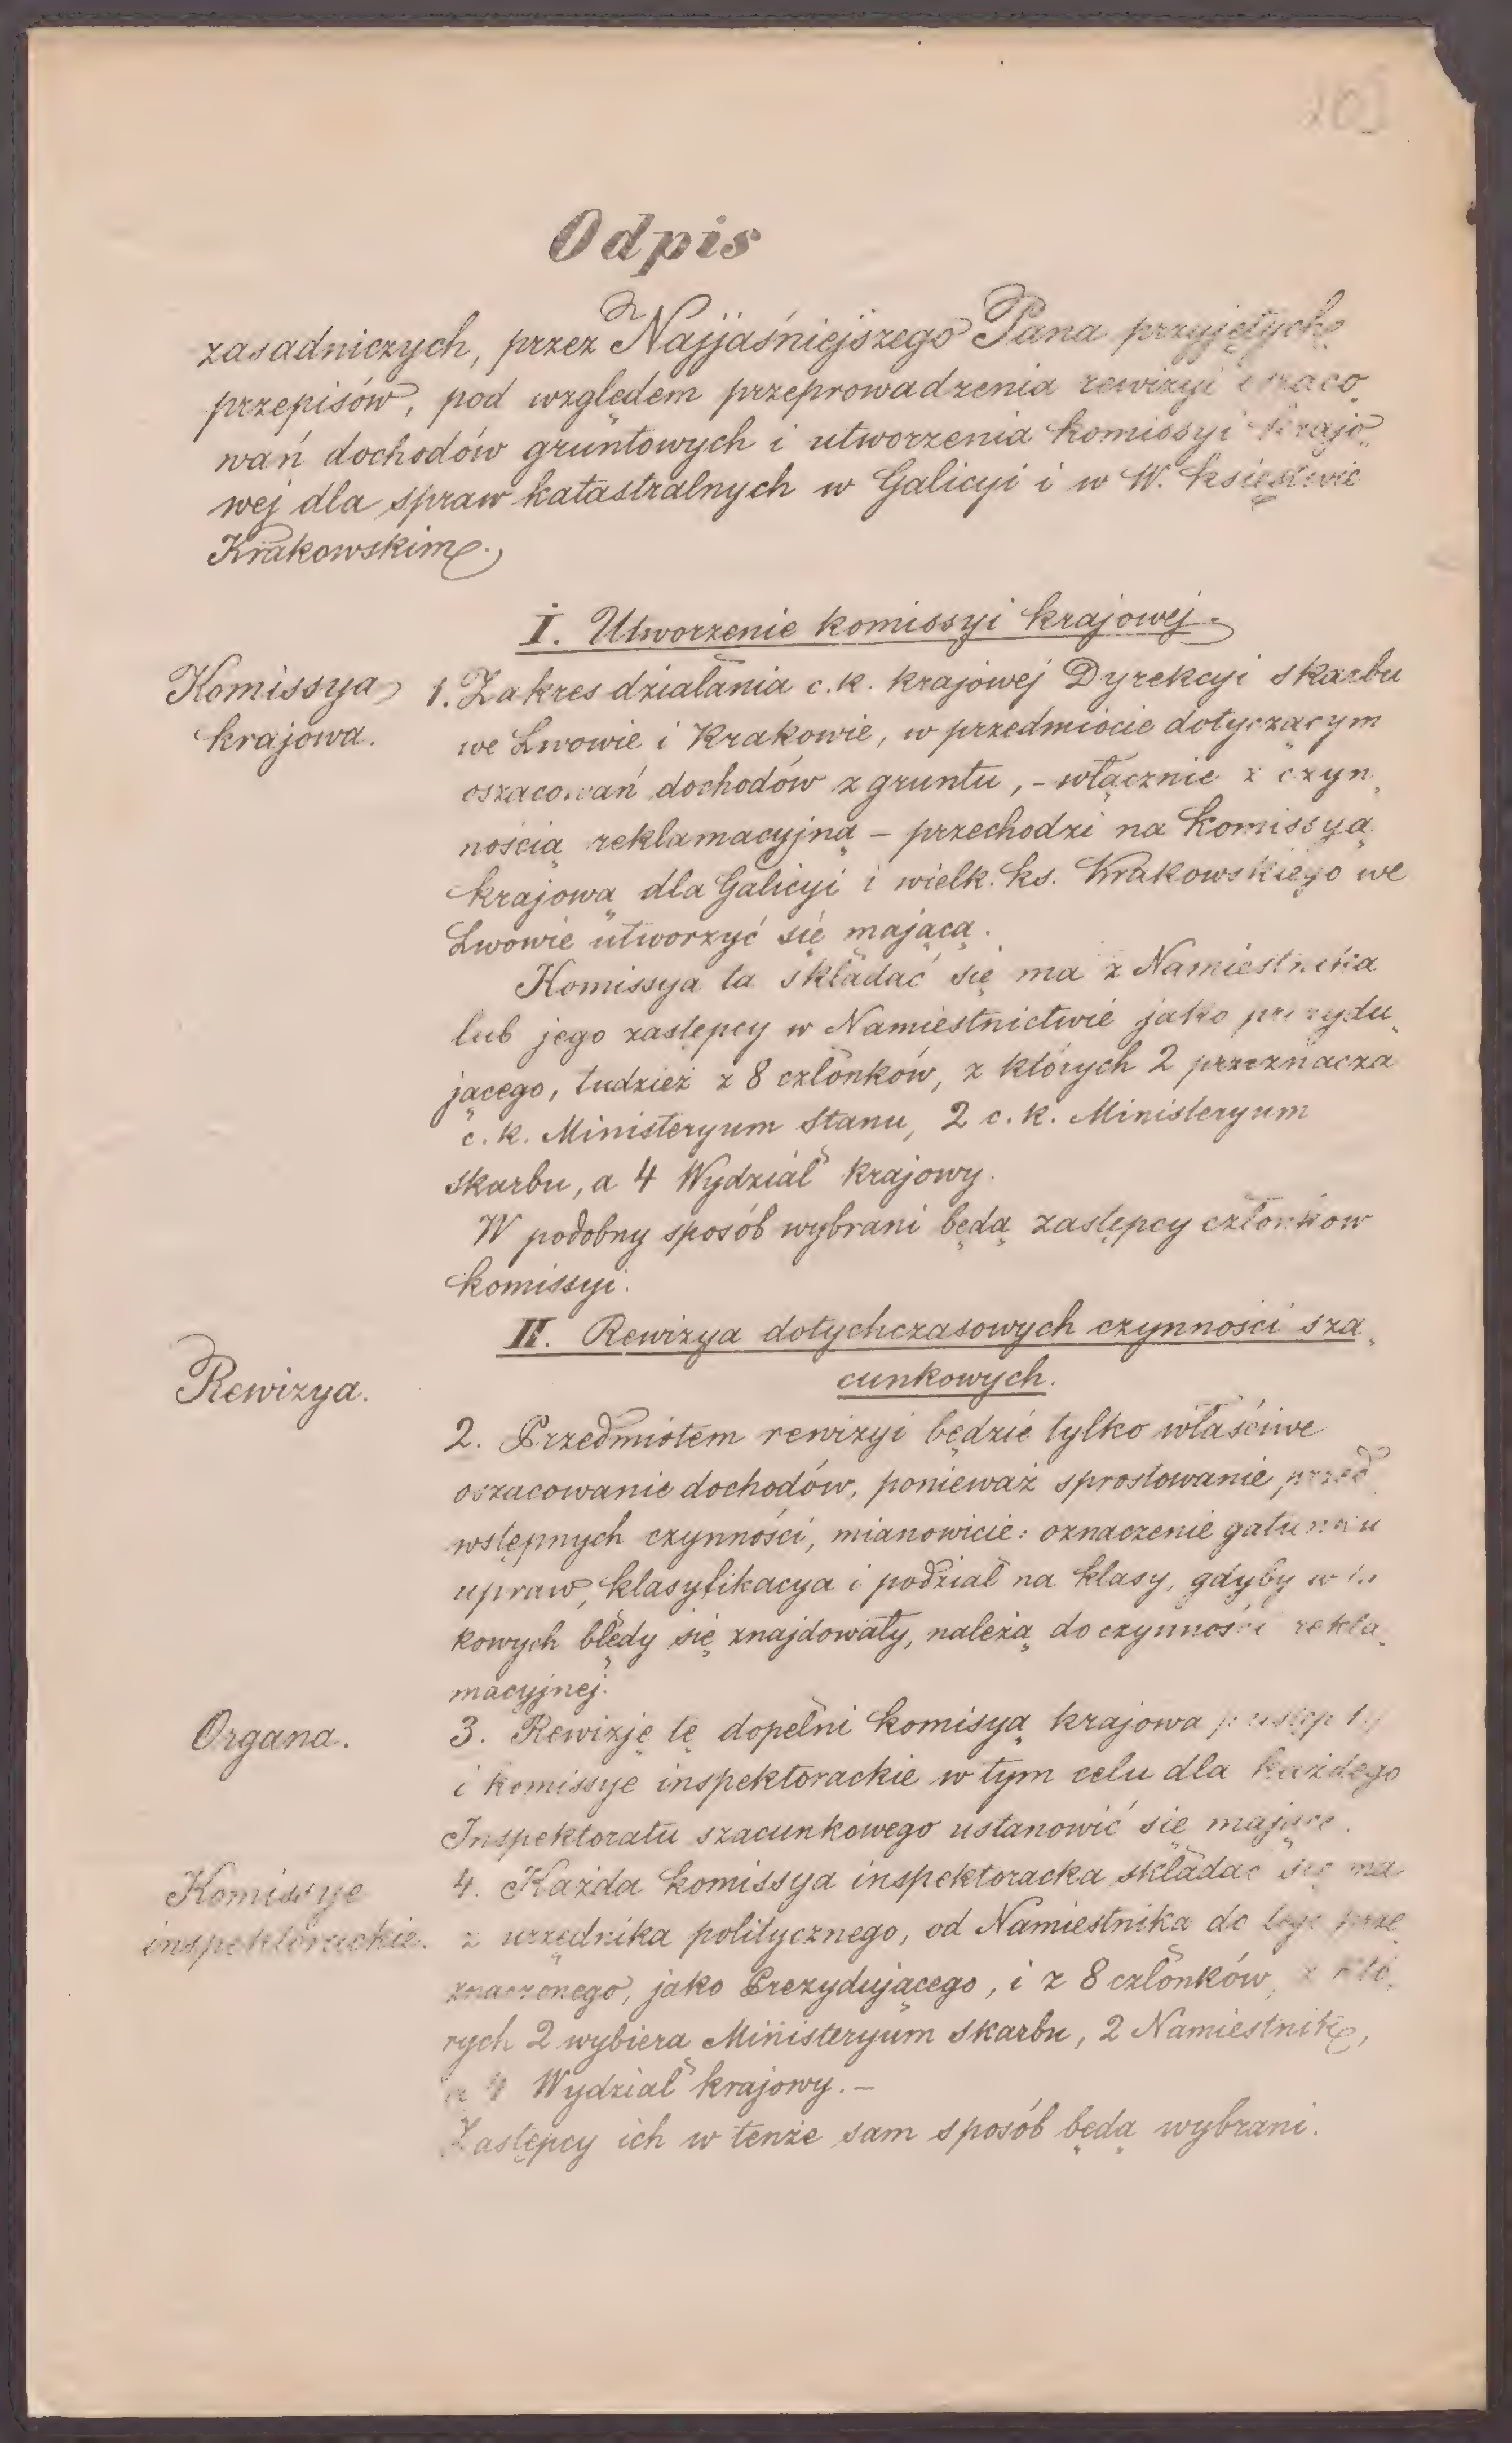 Odpis
zasadniczych, przez Najjaśniejszego Pana przyjętych
przepisów, pod względem przeprowadzenia rewizyi
wań dochodów gruntowych i utworzenia komissyi krajo„
wej dla spraw katastralnych w Galicyi i w W. księstwie
Krakowskim.
I. Utworzenie komissyi krajowej.
Komissya
krajowa.
1. Zakres działania c. k. krajowej Dyrekcyi skarbu
we Lwowie i Krakowie, w przedmiocie dotyczącym
oszacowań dochodów z gruntu, – włącznie z czyn„
nością reklamacyjną – przechodzi na komissyą
krajową dla Galicyi i wielk. ks. Krakowskiego we
Lwowie utworzyć się mającą.
Komissya ta składać się ma z Namiestnika
lub jego zastępcy w Namiestnictwie jako prezydu„
jącego, tudzież z 8 członków, z których 2 przeznacza
c. k. Ministeryum Stanu, 2 c. k. Ministeryum
skarbu, a 4 Wydział krajowy.
W podobny sposób wybrani będą zastępcy członków
komissyi.
II. Rewizya dotychczasowych czynności sza„
cunkowych.
Rewizya.
2. Przedmiotem rewizyi będzie tylko właściwe
oszacowanie dochodów, ponieważ sprostowanie przed
wstępnych czynności, mianowicie: oznaczenie gatunku
upraw, klasyfikacya i podział na klasy, gdyby w
kowych błędy się znajdowały, należą do czynności rekla„
macyjnej.
Organa.
3. Rewizję tę dopełni komisyą krajowa
i komissye inspektorackie w tym celu dla każdego
Inspektoratu szacunkowego ustanowić się mające.
Komissye
inspektorackie.
4. Każda komissya inspektoracka składać się ma
z urzędnika politycznego, od Namiestnika do tego prze„
znaczonego, jako Prezydującego, i z 8 członków, z któ„
rych 2 wybiera Ministeryum skarbu, 2 Namiestnik,
a 4 Wydział krajowy. –
Zastępcy ich w tenże sam sposób będą wybrani.